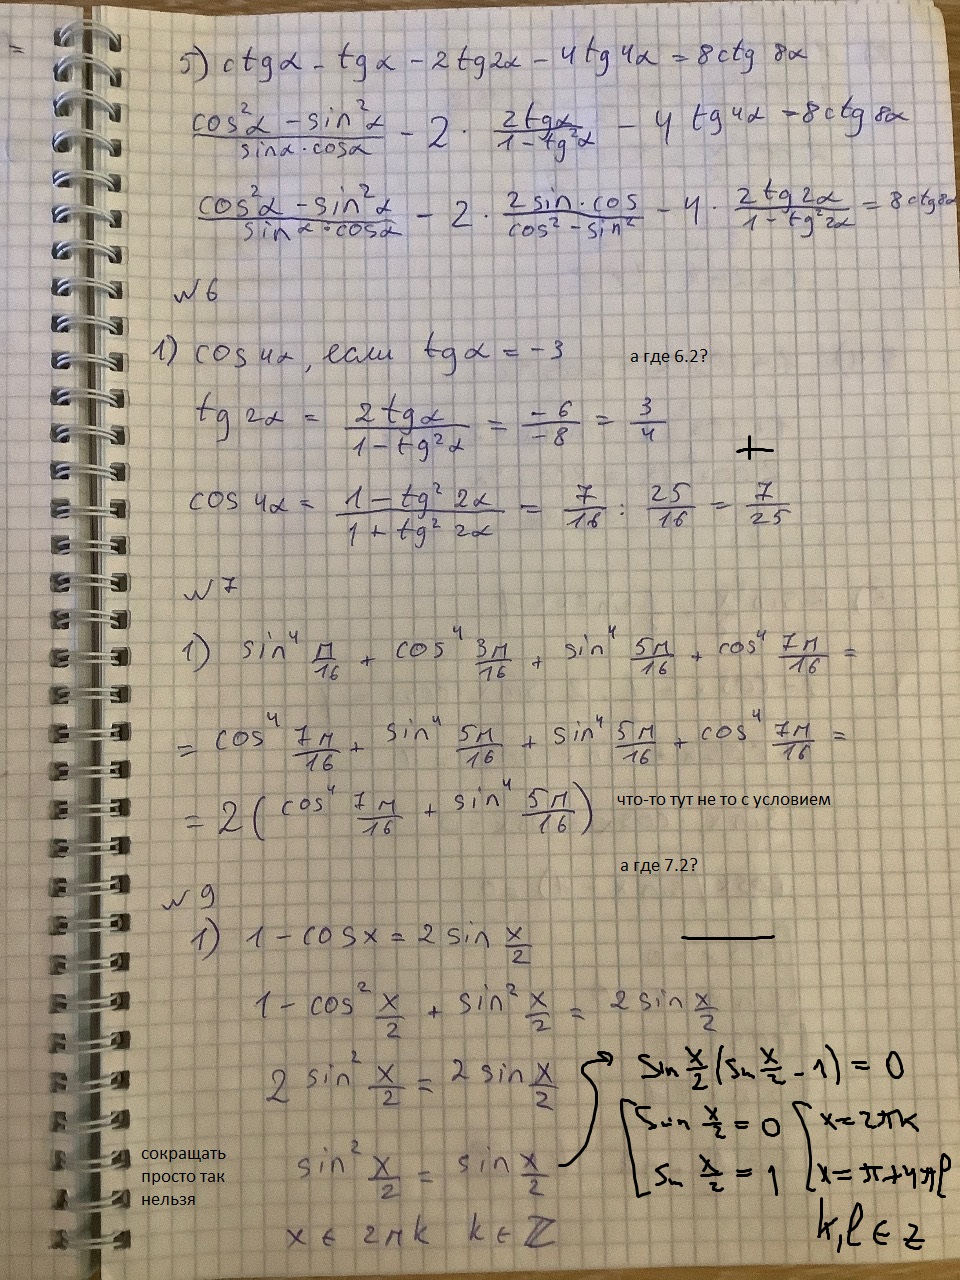 =
5) ctgα - tgα - 2tg2α - 4tg4α = 8ctg 8α
cos²α - sin²α / sinα·cosα - 2 · 2tgα / 1-tg²α - 4 tg4α = 8ctg 8α
cos²α - sin²α / sinα·cosα - 2 · 2sin·cos / cos²-sin² - 4 · 2tg2α / 1-tg²2α = 8ctg8α
№6
1) cos4α, если tgα = -3 а где 6.2?
tg2α = 2tgα / 1-tg²α = -6/-8 = 3/4
+
cos4α = 1-tg²2α / 1+tg²2α = 7/16 : 25/16 = 7/25
№7
1) sin⁴ π/16 + cos⁴ 3π/16 + sin⁴ 5π/16 + cos⁴ 7π/16 =
= cos⁴ 7π/16 + sin⁴ 5π/16 + sin⁴ 5π/16 + cos⁴ 7π/16 =
= 2(cos⁴ 7π/16 + sin⁴ 5π/16) что-то тут не то с условием
а где 7.2?
№9
1) 1-cosx = 2sin x/2
1-cos² x/2 + sin² x/2 = 2sin x/2
2sin² x/2 = 2sin x/2
sin² x/2 = sin x/2
x ∈ 2πk k ∈ ℤ
сокращать
просто так
нельзя
sin x/2 (sin x/2 - 1) = 0
[ sin x/2 = 0 [ x = 2πk
sin x/2 = 1 x = π+4πl
k, l ∈ z